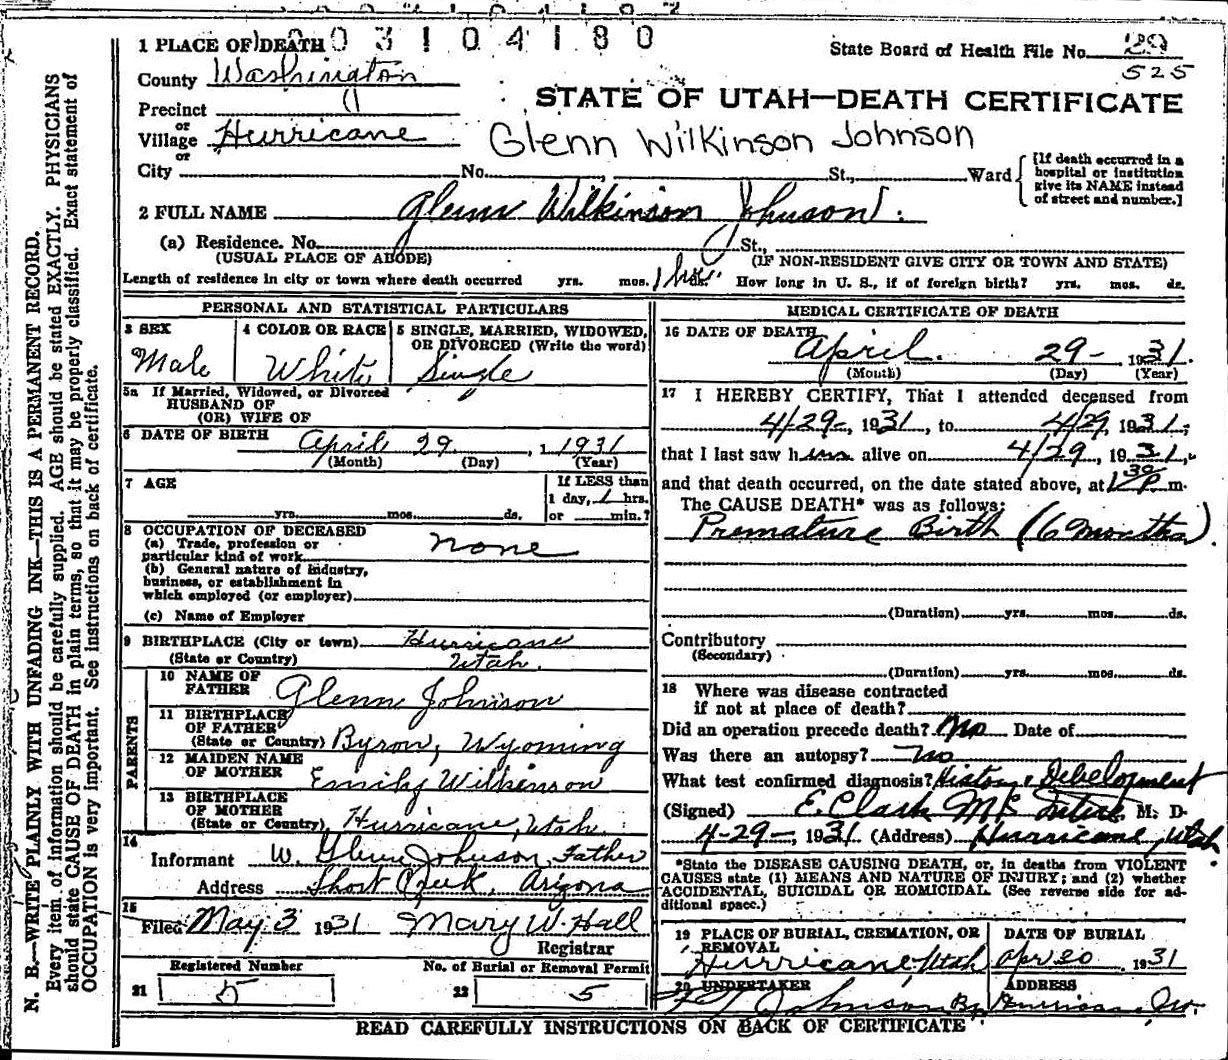 1 PLACE OF DEATH 003104180
State Board of Health File No. 29
525
County Washington
STATE OF UTAH—DEATH CERTIFICATE
Precinct
or
Village Hurricane
Glenn Wilkinson Johnson
or
City No. St., Ward
[If death occurred in a
hospital or institution
give its NAME instead
of street and number.]
2 FULL NAME Glenn Wilkinson Johnson
(a) Residence. No. St.,
(USUAL PLACE OF ABODE) (IF NON-RESIDENT GIVE CITY OR TOWN AND STATE)
Length of residence in city or town where death occurred yrs. mos. 1 hr. ds. How long in U. S., if of foreign birth? yrs. mos. ds.
PERSONAL AND STATISTICAL PARTICULARS
3 SEX 4 COLOR OR RACE 5 SINGLE, MARRIED, WIDOWED,
OR DIVORCED (Write the word)
Male White Single
5a If Married, Widowed, or Divorced
HUSBAND OF
(OR) WIFE OF
6 DATE OF BIRTH April 29, 1931
(Month) (Day) (Year)
7 AGE If LESS than
1 day, 1 hrs.
yrs. mos. ds. or min.?
8 OCCUPATION OF DECEASED
(a) Trade, profession or
particular kind of work none
(b) General nature of industry,
business, or establishment in
which employed (or employer)
(c) Name of Employer
9 BIRTHPLACE (City or town) Hurricane
(State or Country) Utah.
PARENTS
10 NAME OF
FATHER Glenn Johnson
11 BIRTHPLACE
OF FATHER
(State or Country) Byron, Wyoming
12 MAIDEN NAME
OF MOTHER Emily Wilkinson
13 BIRTHPLACE
OF MOTHER
(State or Country) Hurricane, Utah.
14
Informant W. Glenn Johnson, Father
Address Short Creek, Arizona
15
Filed May 3 1931 Mary W. Hall
Registrar
Registered Number No. of Burial or Removal Permit
21 5 22 5
MEDICAL CERTIFICATE OF DEATH
16 DATE OF DEATH
April 29- 1931.
(Month) (Day) (Year)
17 I HEREBY CERTIFY, That I attended deceased from
4/29-, 1931, to 4/29, 1931;
that I last saw him alive on 4/29, 1931,
and that death occurred, on the date stated above, at 1 30 P m.
The CAUSE DEATH* was as follows:
Premature Birth (6 months).
(Duration) yrs. mos. ds.
Contributory
(Secondary)
(Duration) yrs. mos. ds.
18 Where was disease contracted
if not at place of death?
Did an operation precede death? No Date of
Was there an autopsy? No
What test confirmed diagnosis? History & Development
(Signed) E. Clark McIntire M. D.
4-29-, 1931 (Address) Hurricane, Utah.
*State the DISEASE CAUSING DEATH, or, in deaths from VIOLENT
CAUSES state (1) MEANS AND NATURE OF INJURY; and (2) whether
ACCIDENTAL, SUICIDAL OR HOMICIDAL. (See reverse side for ad-
ditional space.)
19 PLACE OF BURIAL, CREMATION, OR
REMOVAL
Hurricane, Utah
DATE OF BURIAL
Apr 30 1931
20 UNDERTAKER
Johnson
ADDRESS
READ CAREFULLY INSTRUCTIONS ON BACK OF CERTIFICATE
N. B.—WRITE PLAINLY WITH UNFADING INK—THIS IS A PERMANENT RECORD.
Every item of information should be carefully supplied. AGE should be stated EXACTLY. PHYSICIANS
should state CAUSE OF DEATH in plain terms, so that it may be properly classified. Exact statement of
OCCUPATION is very important. See instructions on back of certificate.